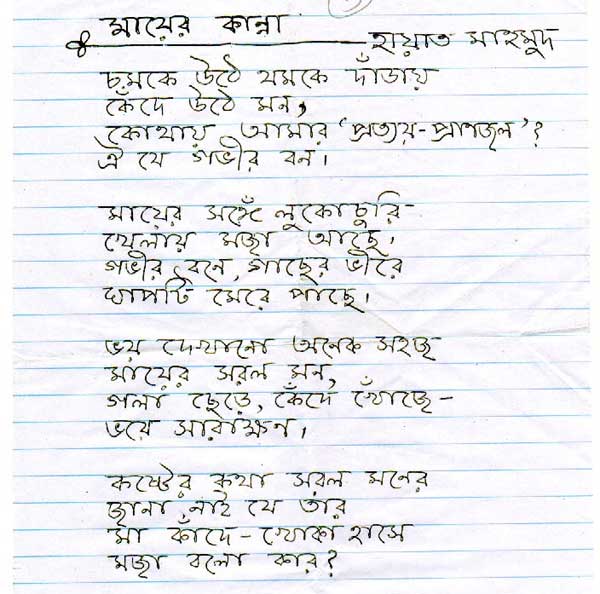 মায়ের কান্না
হায়াত মাহমুদ
চমকে উঠে থমকে দাঁড়ায়
কেঁদে উঠে মন,
কোথায় আমার ‘প্রত্যয়-প্রাণজল’?
ঐ যে গভীর বন।
মায়ের সঙ্গে লুকোচুরি-
খেলায় মজা আছে।
গভীর বনে, গাছের ভীরে
ঘাপটি মেরে পাছে।
ভয় দেখানো অনেক সহজ
মায়ের সরল মন,
গলা ছেড়ে, কেঁদে খোঁজে-
ভয়ে সারাক্ষন।
কষ্টের কথা সরল মনের
জানা নাই যে তার
মা কাঁদে - খোকা হাসে
মজা বলো কার?